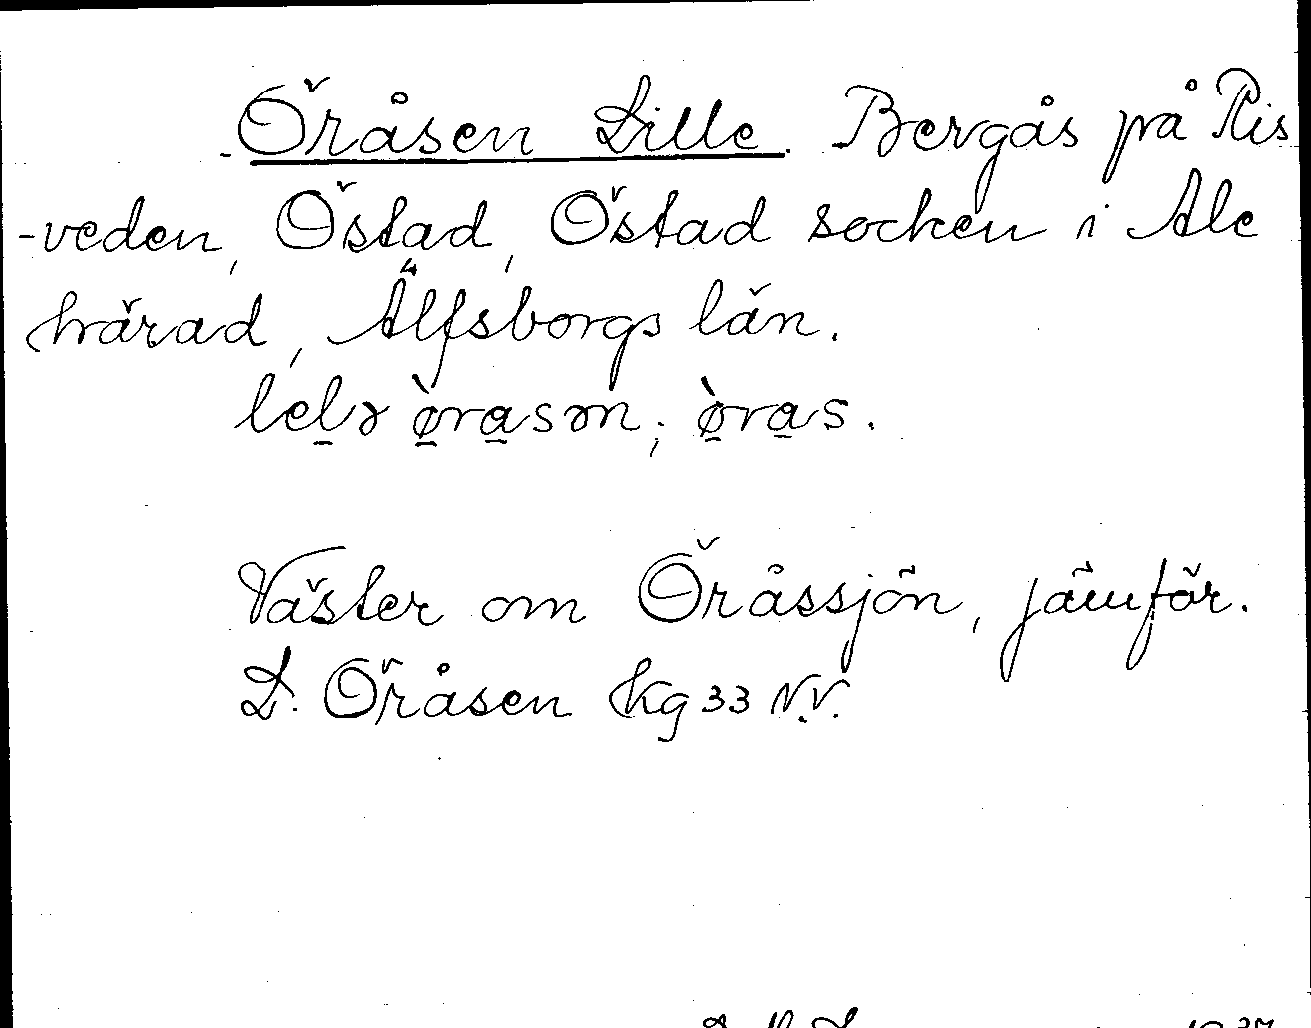 Öråsen Lille. Bergås på Ris
-veden, Östad, Östad socken i Ale
härad, Älfsborgs län.
lel̠ə ø̠̀ra̠sən; ø̠̀ra̠s.
Väster om Öråssjön, jämför.
L. Öråsen kg 33 N.V.